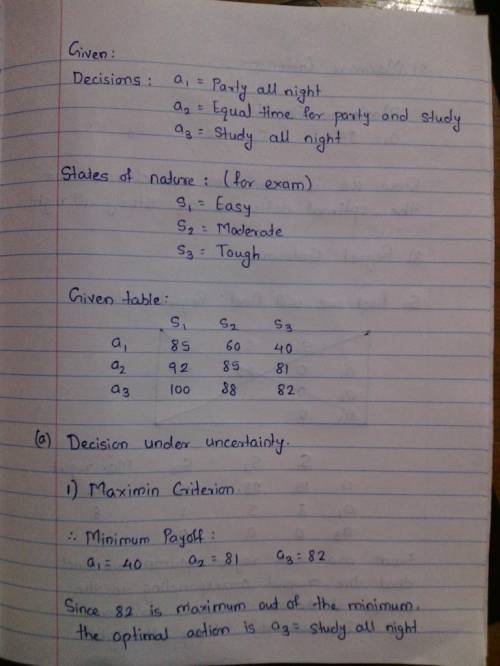 Given:
Decisions: a₁ = Party all night
a₂ = Equal time for party and study
a₃ = Study all night
States of nature: (for exam)
S₁ = Easy
S₂ = Moderate
S₃ = Tough
Given table:
S₁ S₂ S₃
a₁ 85 60 40
a₂ 92 85 81
a₃ 100 88 82
(a) Decision under uncertainty.
1) Maximin Criterion.
∴ Minimum Payoff:
a₁ = 40 a₂ = 81 a₃ = 82
Since 82 is maximum out of the minimum.
the optimal action is a₃ = study all night